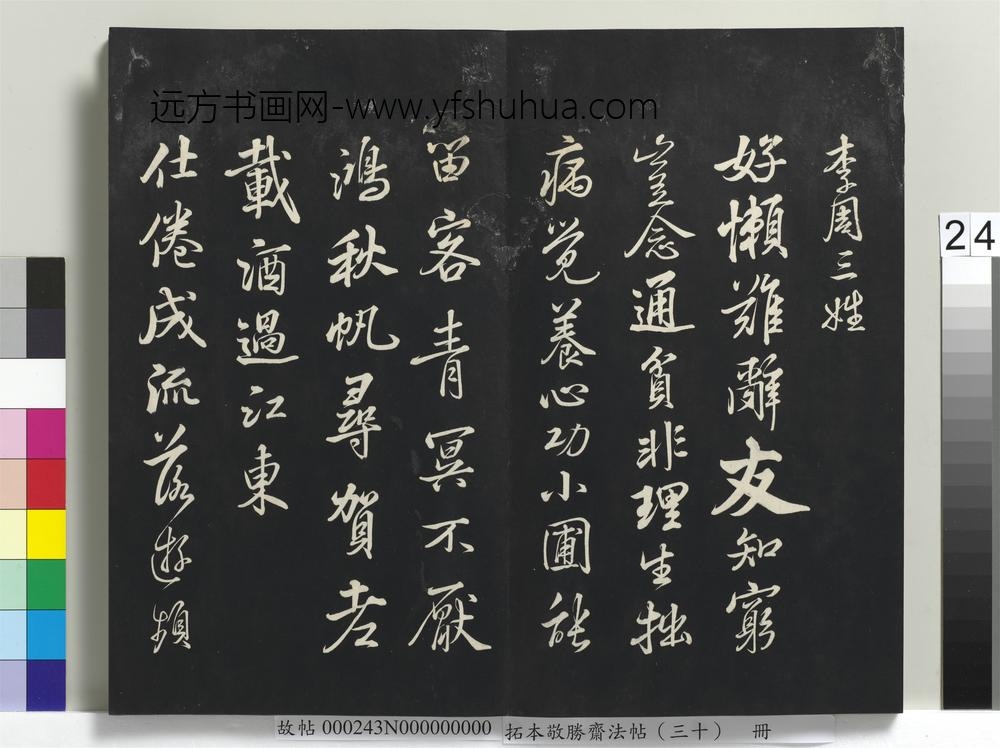 远方书画网-www.yfshuhua.com
李周三姓
好懶難辭友知窮
豈念通貧非理生拙
病覺養心功小圃能
留客青冥不厭
鴻秋帆尋賀老
載酒過江東
仕倦成流落遊頻
24
故帖 000243N000000000
拓本敬勝齋法帖（三十） 冊